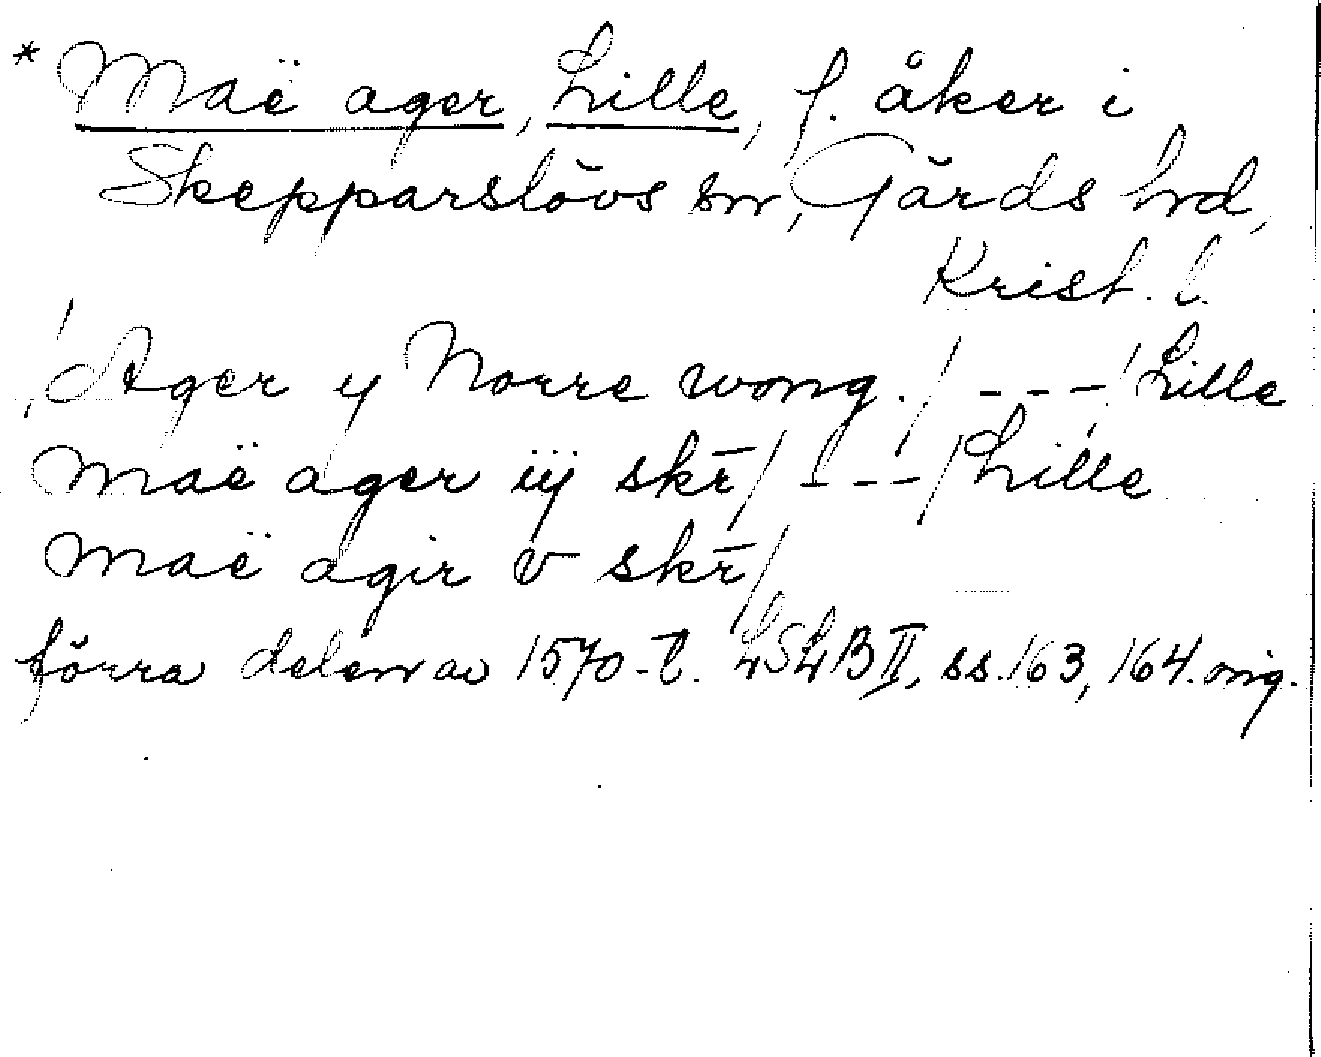 * Maë ager, Lille, f. åker i
Skepparslövs sn, Gärds hd,
Krist. l.
/Ager y Norre wong./ - - - /Lille
maë ager iij skr̄/ - - - /Lille
maë agir v skr̄/
förra delen av 1570-t. LSLB II, ss. 163, 164. orig.